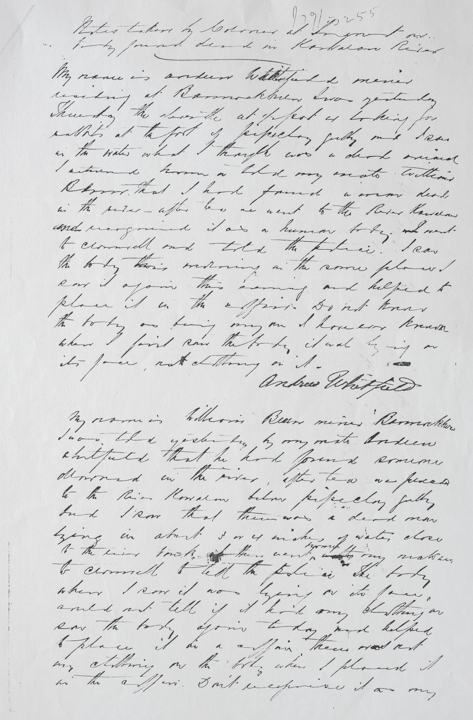 Notes taken by Coroner at Inquest on
Body found dead in Kawarau River
My name is Andrew Whitfield miner
residing at Bannockburn I was yesterday
Thursday the at looking for
rabbits at the foot of pipeclay gully and I saw
in the water what I thought was a dead animal
I returned home & told my mate William
that I had found a man dead
in the river - after tea we went to the River Kawarau
and recognised it as a human body, we went
to Cromwell and told the police. I saw
the body this morning in the same place I
saw it again this evening and helped to
place it in the coffin. Do not know
the body as being any one I have ever known
when I first saw the body, it was lying on
its face, no clothing on it.
Andrew Whitfield
My name is William miner Bannockburn
I was told yesterday by my mate Andrew
Whitfield that he had found someone
drowned in the river, after tea we
to the River Kawarau below pipeclay gully
and I saw that there was a dead man
lying in about 3 or inches of water close
to the river bank then went my mate
to Cromwell to tell the police The body
when I saw it was lying on its face,
could not tell if it had any clothing on
saw the body again today and helped
to place it in a coffin there was not
any clothing on the body when I placed it
in the coffin. Don't recognise it as any